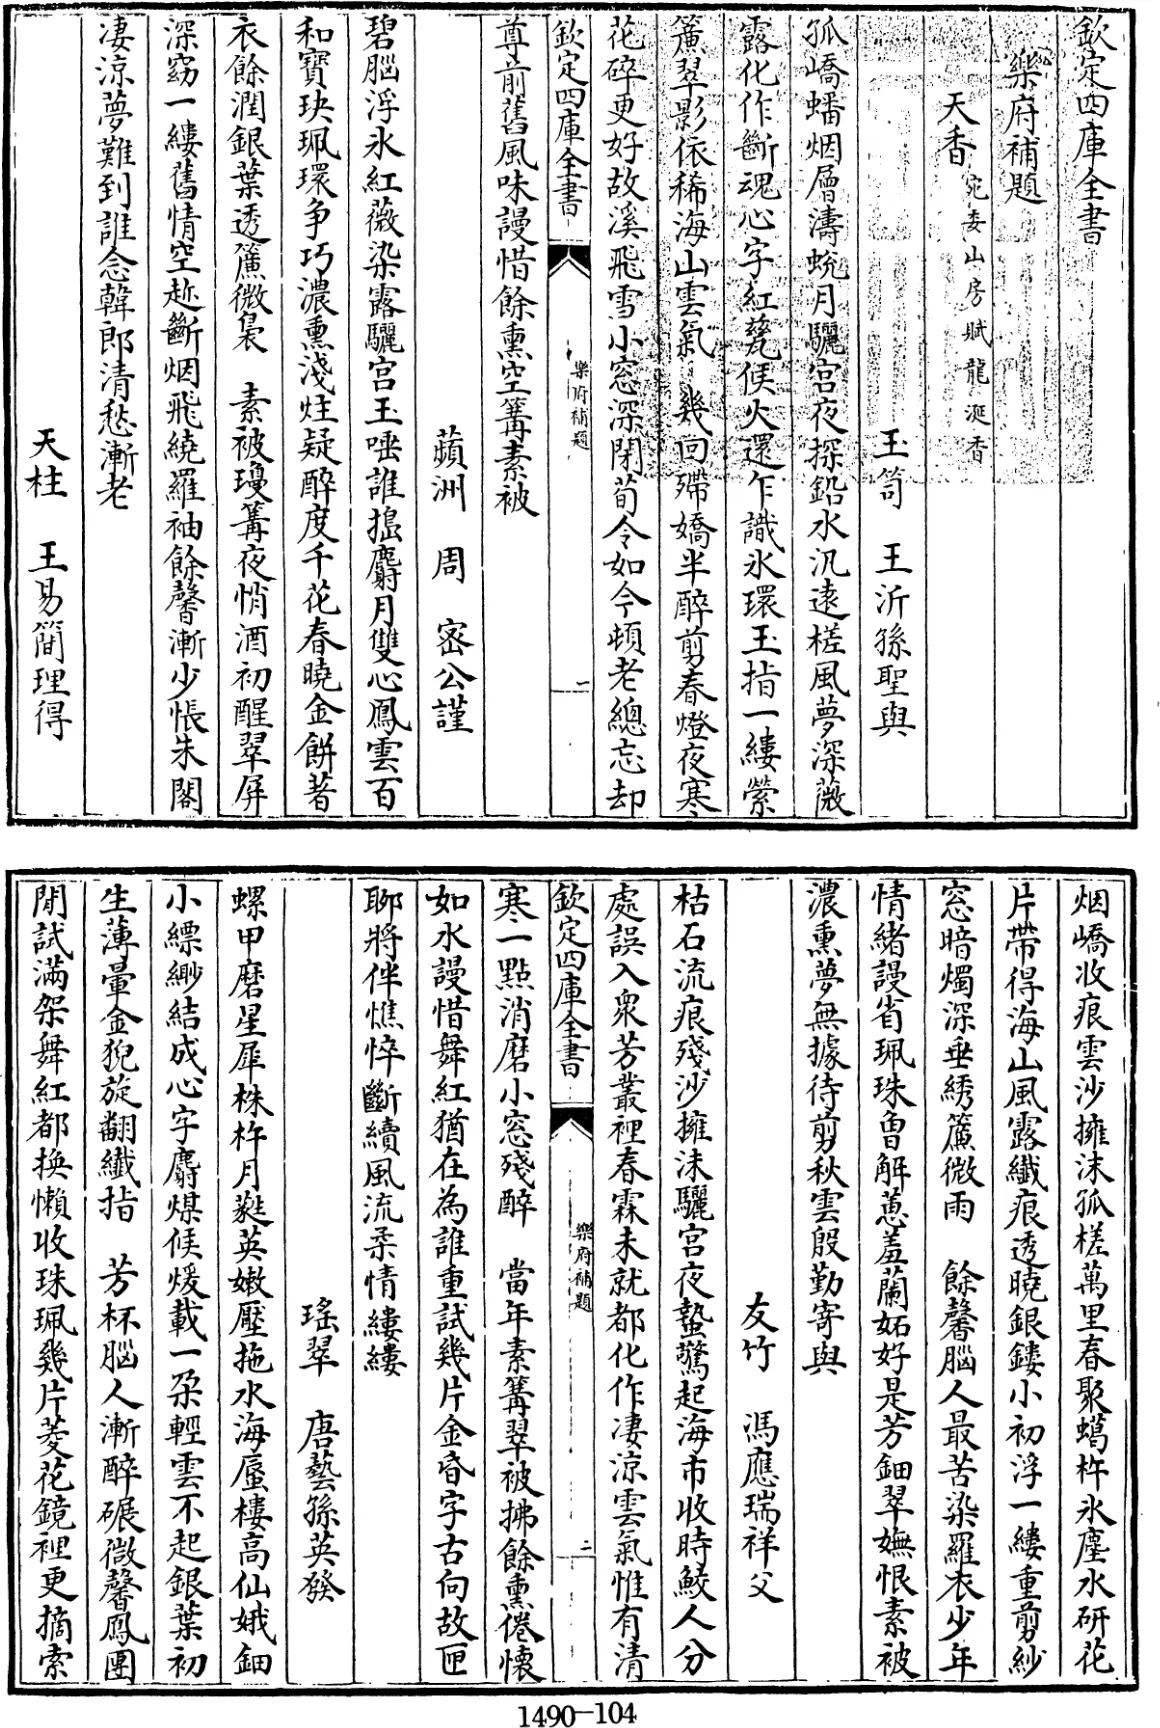 欽定四庫全書
樂府補題
天香 宛委山房賦龍涎香
玉笥 王沂孫聖與
孤嶠蟠烟層濤蛻月驪宮夜探鉛水汎遠槎風夢深薇
露化作斷魂心字紅甆候火還乍識氷環玉指一縷縈
簾翠影依稀海山雲氣 幾回殢嬌半醉剪春燈夜寒
花碎更好故溪飛雪小窓深閉荀令如今頓老總忘却
欽定四庫全書
樂府補題
一
尊前舊風味謾惜餘熏空篝素被
蘋洲 周密公謹
碧腦浮氷紅薇染露驪宮玉唾誰搗麝月雙心鳳雲百
和寶玦珮環爭巧濃熏淺炷疑醉度千花春曉金餅著
衣餘潤銀葉透簾微裊 素被瓊篝夜悄酒初醒翠屏
深窈一縷舊情空趂斷烟飛繞羅袖餘馨漸少悵朱閣
凄涼夢難到誰念韓郎清愁漸老
天柱 王易簡理得
烟嶠收痕雲沙擁沫孤槎萬里春聚蠟杵氷塵水研花
片帶得海山風露纖痕透曉銀鏤小初浮一縷重剪紗
窓暗燭深垂綉簾微雨 餘馨腦人最苦染羅衣少年
情緒謾省珮珠曽解蕙羞蘭妬好是芳鈿翠嫵恨素被
濃熏夢無據待剪秋雲殷勤寄與
友竹 馮應瑞祥父
枯石流痕殘沙擁沫驪宮夜蟄驚起海市收時鮫人分
處誤入衆芳叢裡春霖未就都化作凄涼雲氣惟有清
欽定四庫全書
樂府補題
二
寒一點消磨小窓殘醉 當年素篝翠被拂餘熏倦懷
如水謾惜舞紅猶在為誰重試幾片金昏字古向故匣
聊將伴憔悴斷續風流柔情縷縷
瑤翠 唐藝孫英發
螺甲磨星犀株杵月蕤英嫩壓拖水海蜃樓高仙娥鈿
小縹緲結成心字麝煤候煖載一朶輕雲不起銀葉初
生薄暈金猊旋翻纖指 芳杯腦人漸醉碾微馨鳳團
閒試滿架舞紅都換懶收珠珮幾片菱花鏡裡更摘索
1490-104